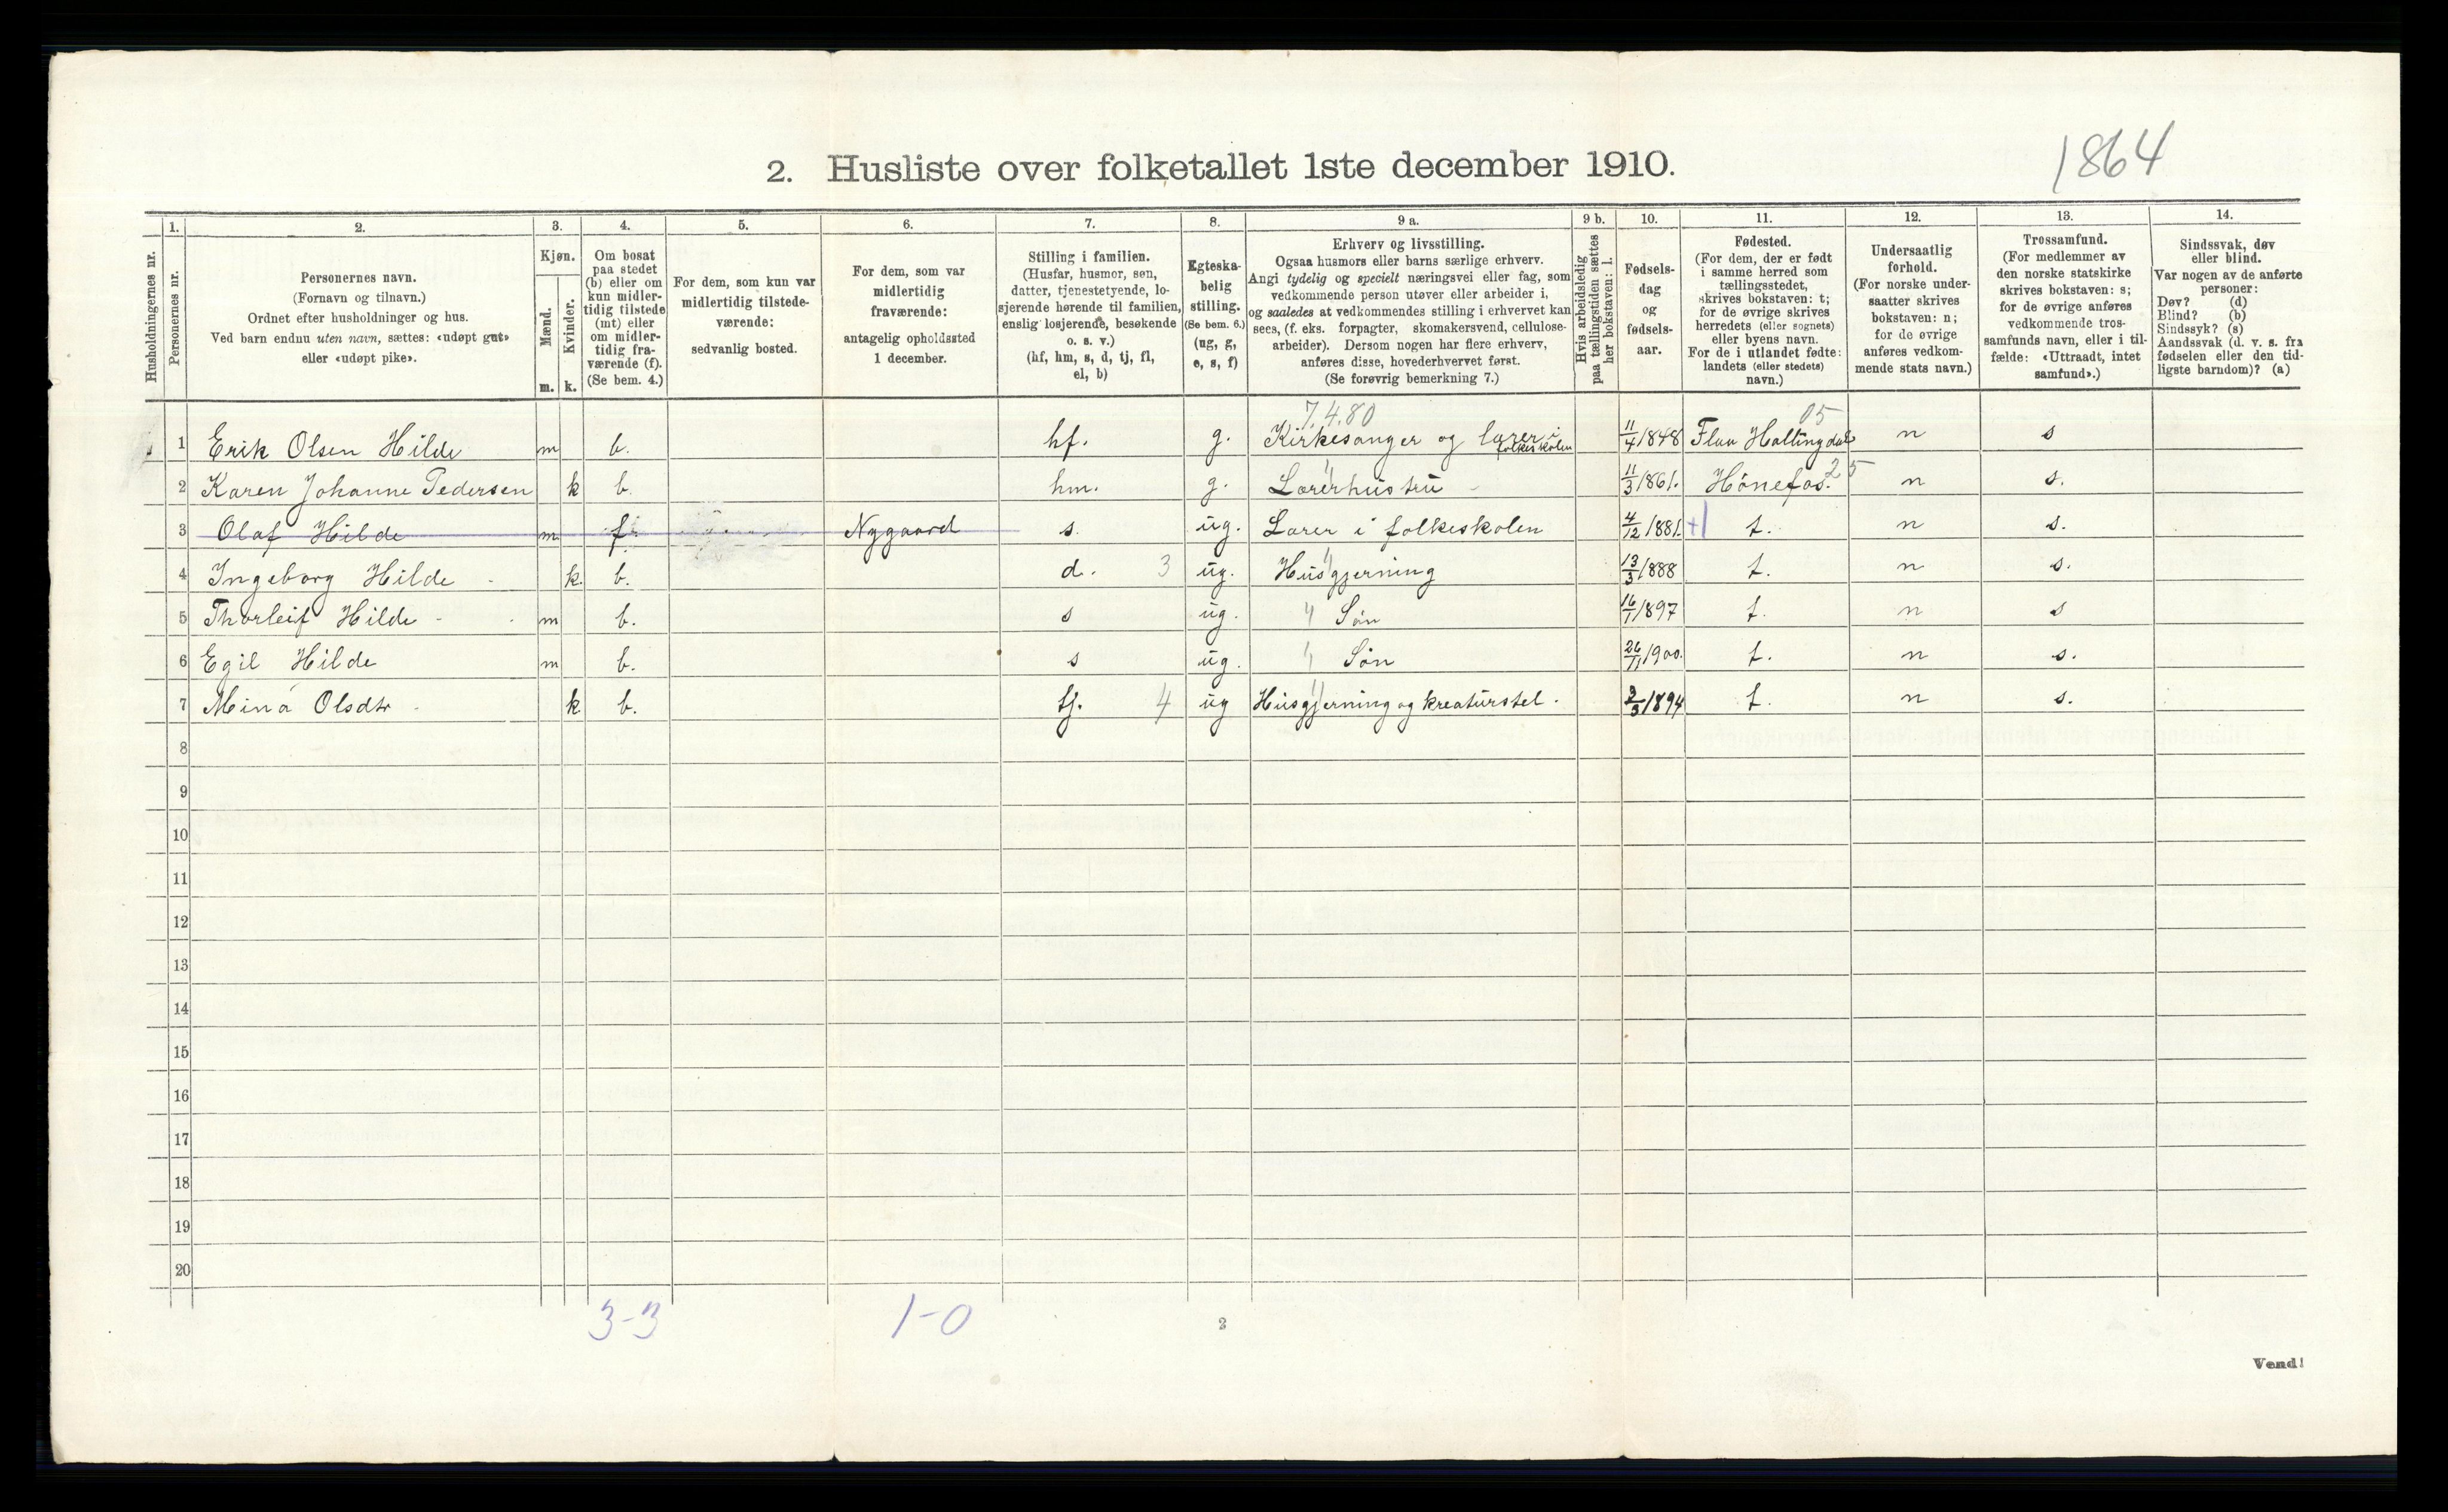 1864
2. Husliste over folketallet 1ste december 1910.
1. 2. 3. 4. 5. 6. 7. 8. 9 a. 9 b. 10. 11. 12. 13. 14.
Husholdningernes nr.
Personernes nr.
Personernes navn.
(Fornavn og tilnavn.)
Ordnet efter husholdninger og hus.
Ved barn endnu uten navn, sættes: «udøpt gut»
eller «udøpt pike».
Kjøn.
Mænd.
Kvinder.
m. k.
Om bosat
paa stedet
(b) eller om
kun midler-
tidig tilstede
(mt) eller
om midler-
tidig fra-
værende (f).
(Se bem. 4.)
For dem, som kun var
midlertidig tilstede-
værende:
sedvanlig bosted.
For dem, som var
midlertidig
fraværende:
antagelig opholdssted
1 december.
Stilling i familien.
(Husfar, husmor, søn,
datter, tjenestetyende, lo-
sjerende hørende til familien,
enslig losjerende, besøkende
o. s. v.)
(hf, hm, s, d, tj, fl,
el, b)
Egteska-
belig
stilling.
(Se bem. 6.)
(ug, g,
e, s, f)
Erhverv og livsstilling.
Ogsaa husmors eller barns særlige erhverv.
Angi tydelig og specielt næringsvei eller fag, som
vedkommende person utøver eller arbeider i,
og saaledes at vedkommendes stilling i erhvervet kan
sees, (f. eks. forpagter, skomakersvend, cellulose-
arbeider). Dersom nogen har flere erhverv,
anføres disse, hovederhvervet først.
(Se forøvrig bemerkning 7.)
Hvis arbeidsledig
paa tællingstiden sættes
her bokstaven: l.
Fødsels-
dag
og
fødsels-
aar.
Fødested.
(For dem, der er født
i samme herred som
tællingsstedet,
skrives bokstaven: t;
for de øvrige skrives
herredets (eller sognets)
eller byens navn.
For de i utlandet fødte:
landets (eller stedets)
navn.)
Undersaatlig
forhold.
(For norske under-
saatter skrives
bokstaven: n;
for de øvrige
anføres vedkom-
mende stats navn.)
Trossamfund.
(For medlemmer av
den norske statskirke
skrives bokstaven: s;
for de øvrige anføres
vedkommende tros-
samfunds navn, eller i til-
fælde: «Uttraadt, intet
samfund».)
Sindssvak, døv
eller blind.
Var nogen av de anførte
personer:
Døv? (d)
Blind? (b)
Sindssyk? (s)
Aandssvak (d. v. s. fra
fødselen eller den tid-
ligste barndom)? (a)
7.4.80 05
1 Erik Olsen Hilde m b. hf. g. Kirkesanger og lærer i folkeskolen 11/4 1848 Flaa Hallingdal n s
2 Karen Johanne Pedersen k b. hm. g. Lærerhustru 11/3 1861. Hönefos. 25 n s.
3 Olaf Hilde m f. Nygaard s. ug. Lærer i folkeskolen 4/12 1881. +1 t. n s.
4 Ingeborg Hilde k. b. d. 3 ug. Husgjerning 13/3 1888 t. n s.
5 Thorleif Hilde m b. s ug. " Sön 16/1 1897 t. n s
6 Egil Hilde m b. s ug. " Sön 26/11 1900. t. n s.
7 Mina Olsdtr k b. tj. 4 ug Husgjerning og kreaturstel. 2/3 1894 t. n s.
8
9
10
11
12
13
14
15
16
17
18
19
20
3-3 1-0
2
Vend!